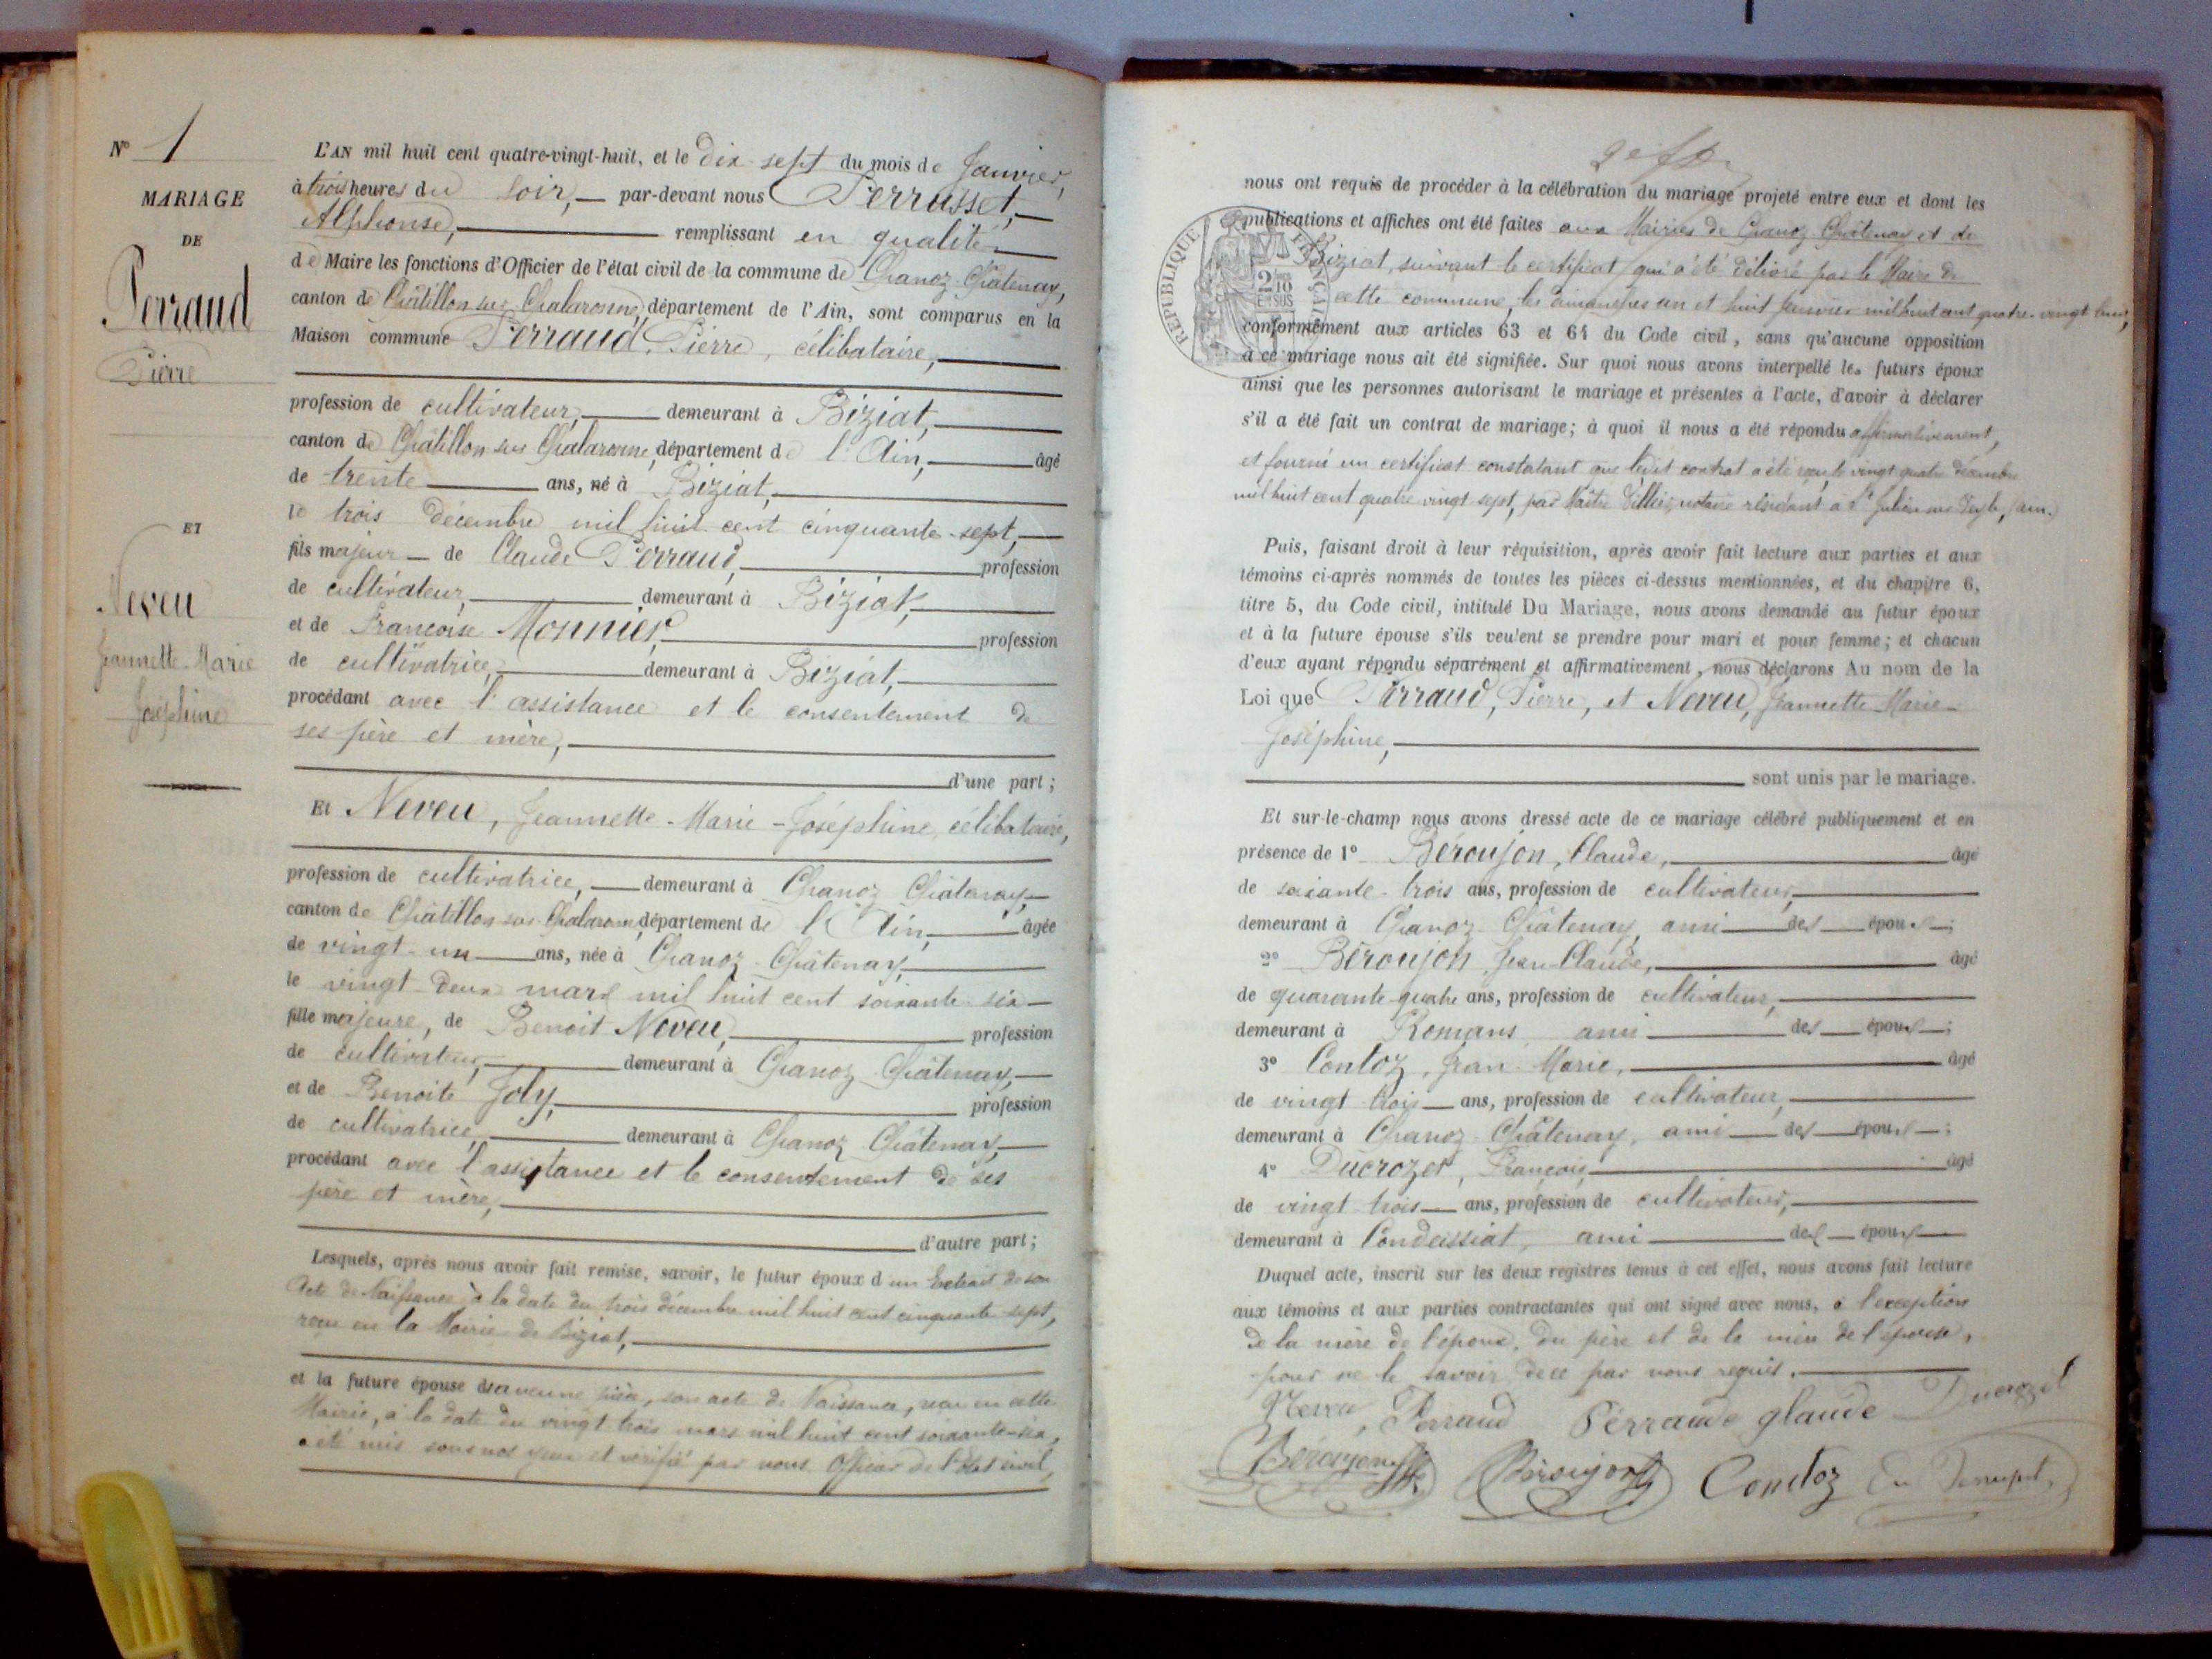 N° 1
MARIAGE
DE
Perraud
Pierre
ET
Neveu
Jeannette-Marie
Joséphine
L'AN mil huit cent quatre-vingt-huit, et le dix-sept du mois de Janvier,
à trois heures du soir, par-devant nous Perrusset,
Alphonse, remplissant en qualité
de Maire les fonctions d'Officier de l'état civil de la commune de Chanoz-Châtenay,
canton de Châtillon sur Chalaronne, département de l'Ain, sont comparus en la
Maison commune Perraud, Pierre, célibataire,
profession de cultivateur, demeurant à Biziat,
canton de Châtillon sur Chalaronne, département de l'Ain, âgé
de trente ans, né à Biziat,
le trois décembre mil huit cent cinquante-sept,
fils majeur de Claude Perraud, profession
de cultivateur, demeurant à Biziat,
et de Françoise Monnier, profession
de cultivatrice, demeurant à Biziat,
procédant avec l'assistance et le consentement de
ses père et mère,
d'une part ;
Et Neveu, Jeannette-Marie-Joséphine, célibataire,
profession de cultivatrice, demeurant à Chanoz-Châtenay,
canton de Châtillon sur Chalaronne, département de l'Ain, âgée
de vingt-un ans, née à Chanoz-Châtenay,
le vingt-deux mars mil huit cent soixante-six
fille majeure, de Benoit Neveu, profession
de cultivateur, demeurant à Chanoz-Châtenay,
et de Benoite Joly, profession
de cultivatrice, demeurant à Chanoz-Châtenay,
procédant avec l'assistance et le consentement de ses
père et mère,
d'autre part ;
Lesquels, après nous avoir fait remise, savoir, le futur époux d'un Extrait de son
Acte de Naissance à la date du trois décembre mil huit cent cinquante-sept,
reçu en la Mairie de Biziat,
et la future épouse d'aucune pièce, son acte de Naissance, reçu en cette
Mairie, à la date du vingt-trois mars mil huit cent soixante-six,
a été mis sous nos yeux et vérifié par nous Officier de l'état civil,
nous ont requis de procéder à la célébration du mariage projeté entre eux et dont les
publications et affiches ont été faites aux Mairies de Chanoz-Châtenay et de
Biziat, suivant le certificat qui a été délivré par le Maire de
cette commune, les dimanches un et huit Janvier mil huit cent quatre-vingt-huit,
RÉPUBLIQUE FRANÇAISE
conformément aux articles 63 et 64 du Code civil, sans qu'aucune opposition
à ce mariage nous ait été signifiée. Sur quoi nous avons interpellé les futurs époux
ainsi que les personnes autorisant le mariage et présentes à l'acte, d'avoir à déclarer
s'il a été fait un contrat de mariage; à quoi il nous a été répondu affirmativement,
et fourni un certificat constatant que ledit contrat a été reçu le vingt quatre décembre
mil huit cent quatre vingt sept, par Maître notaire résidant à St Julien sur (Ain.)
Puis, faisant droit à leur réquisition, après avoir fait lecture aux parties et aux
témoins ci-après nommés de toutes les pièces ci-dessus mentionnées, et du chapitre 6,
titre 5, du Code civil, intitulé Du Mariage, nous avons demandé au futur époux
et à la future épouse s'ils veulent se prendre pour mari et pour femme; et chacun
d'eux ayant répondu séparément et affirmativement, nous déclarons Au nom de la
Loi que Perraud, Pierre, et Neveu, Jeannette-Marie-
Joséphine,
sont unis par le mariage.
Et sur-le-champ nous avons dressé acte de ce mariage célébré publiquement et en
présence de 1° Béroujon, Claude, âgé
de soixante-trois ans, profession de cultivateur,
demeurant à Chanoz-Châtenay, ami des époux ;
2° Béroujon, Jean-Claude, âgé
de quarante-quatre ans, profession de cultivateur,
demeurant à Romans, ami des époux ;
3° Contoz, Jean-Marie, âgé
de vingt-trois ans, profession de cultivateur,
demeurant à Chanoz-Châtenay, ami des époux ;
4° Ducrozet, François, âgé
de vingt-trois ans, profession de cultivateur,
demeurant à Condeissiat, ami des époux
Duquel acte, inscrit sur les deux registres tenus à cet effet, nous avons fait lecture
aux témoins et aux parties contractantes qui ont signé avec nous, à l'exception
de la mère de l'époux, du père et de la mère de l'épouse,
pour ne le savoir de ce par nous requis.
Neveu, Perraud Pérraude glaude Ducrozet
Béroujon Béroujon Contoz